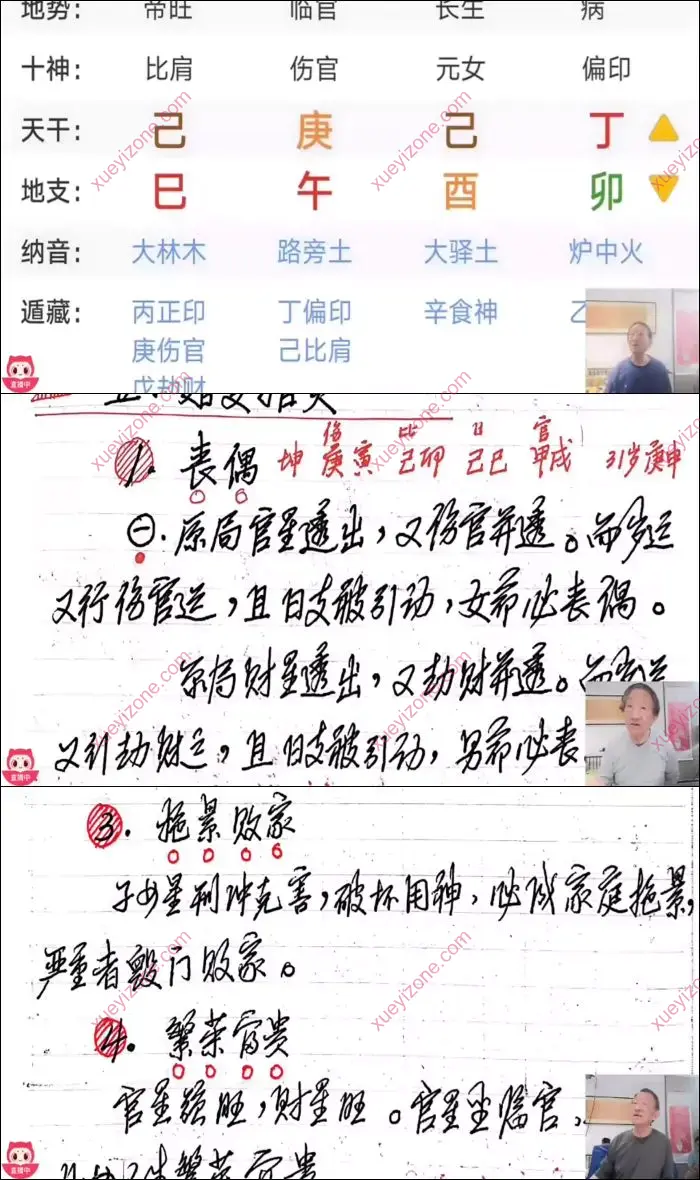 地势： 帝旺 临官 长生 病
十神： 比肩 伤官 元女 偏印
天干： 己 庚 己 丁
地支： 巳 午 酉 卯
纳音： 大林木 路旁土 大驿土 炉中火
遁藏： 丙正印 丁偏印 辛食神 乙
庚伤官 己比肩
戊劫财
直播中
伤 比 日 官
1. 丧偶 坤 庚寅 己卯 己巳 甲戌 31岁庚申
㊀. 原局官星透出，又伤官并透。而岁运
又行伤官运，且日支被引动，女命必丧偶。
原局财星透出，又劫财并透。而岁运
又引劫财运，且日支被引动，男命必丧
直播中
3. 拖累败家
子女星刑冲克害，破坏用神，必成家庭拖累，
严重者毁门败家。
4. 繁荣富贵
官星强旺，财星旺。官星坐临官、
繁荣富贵
直播中
xueyizone.com